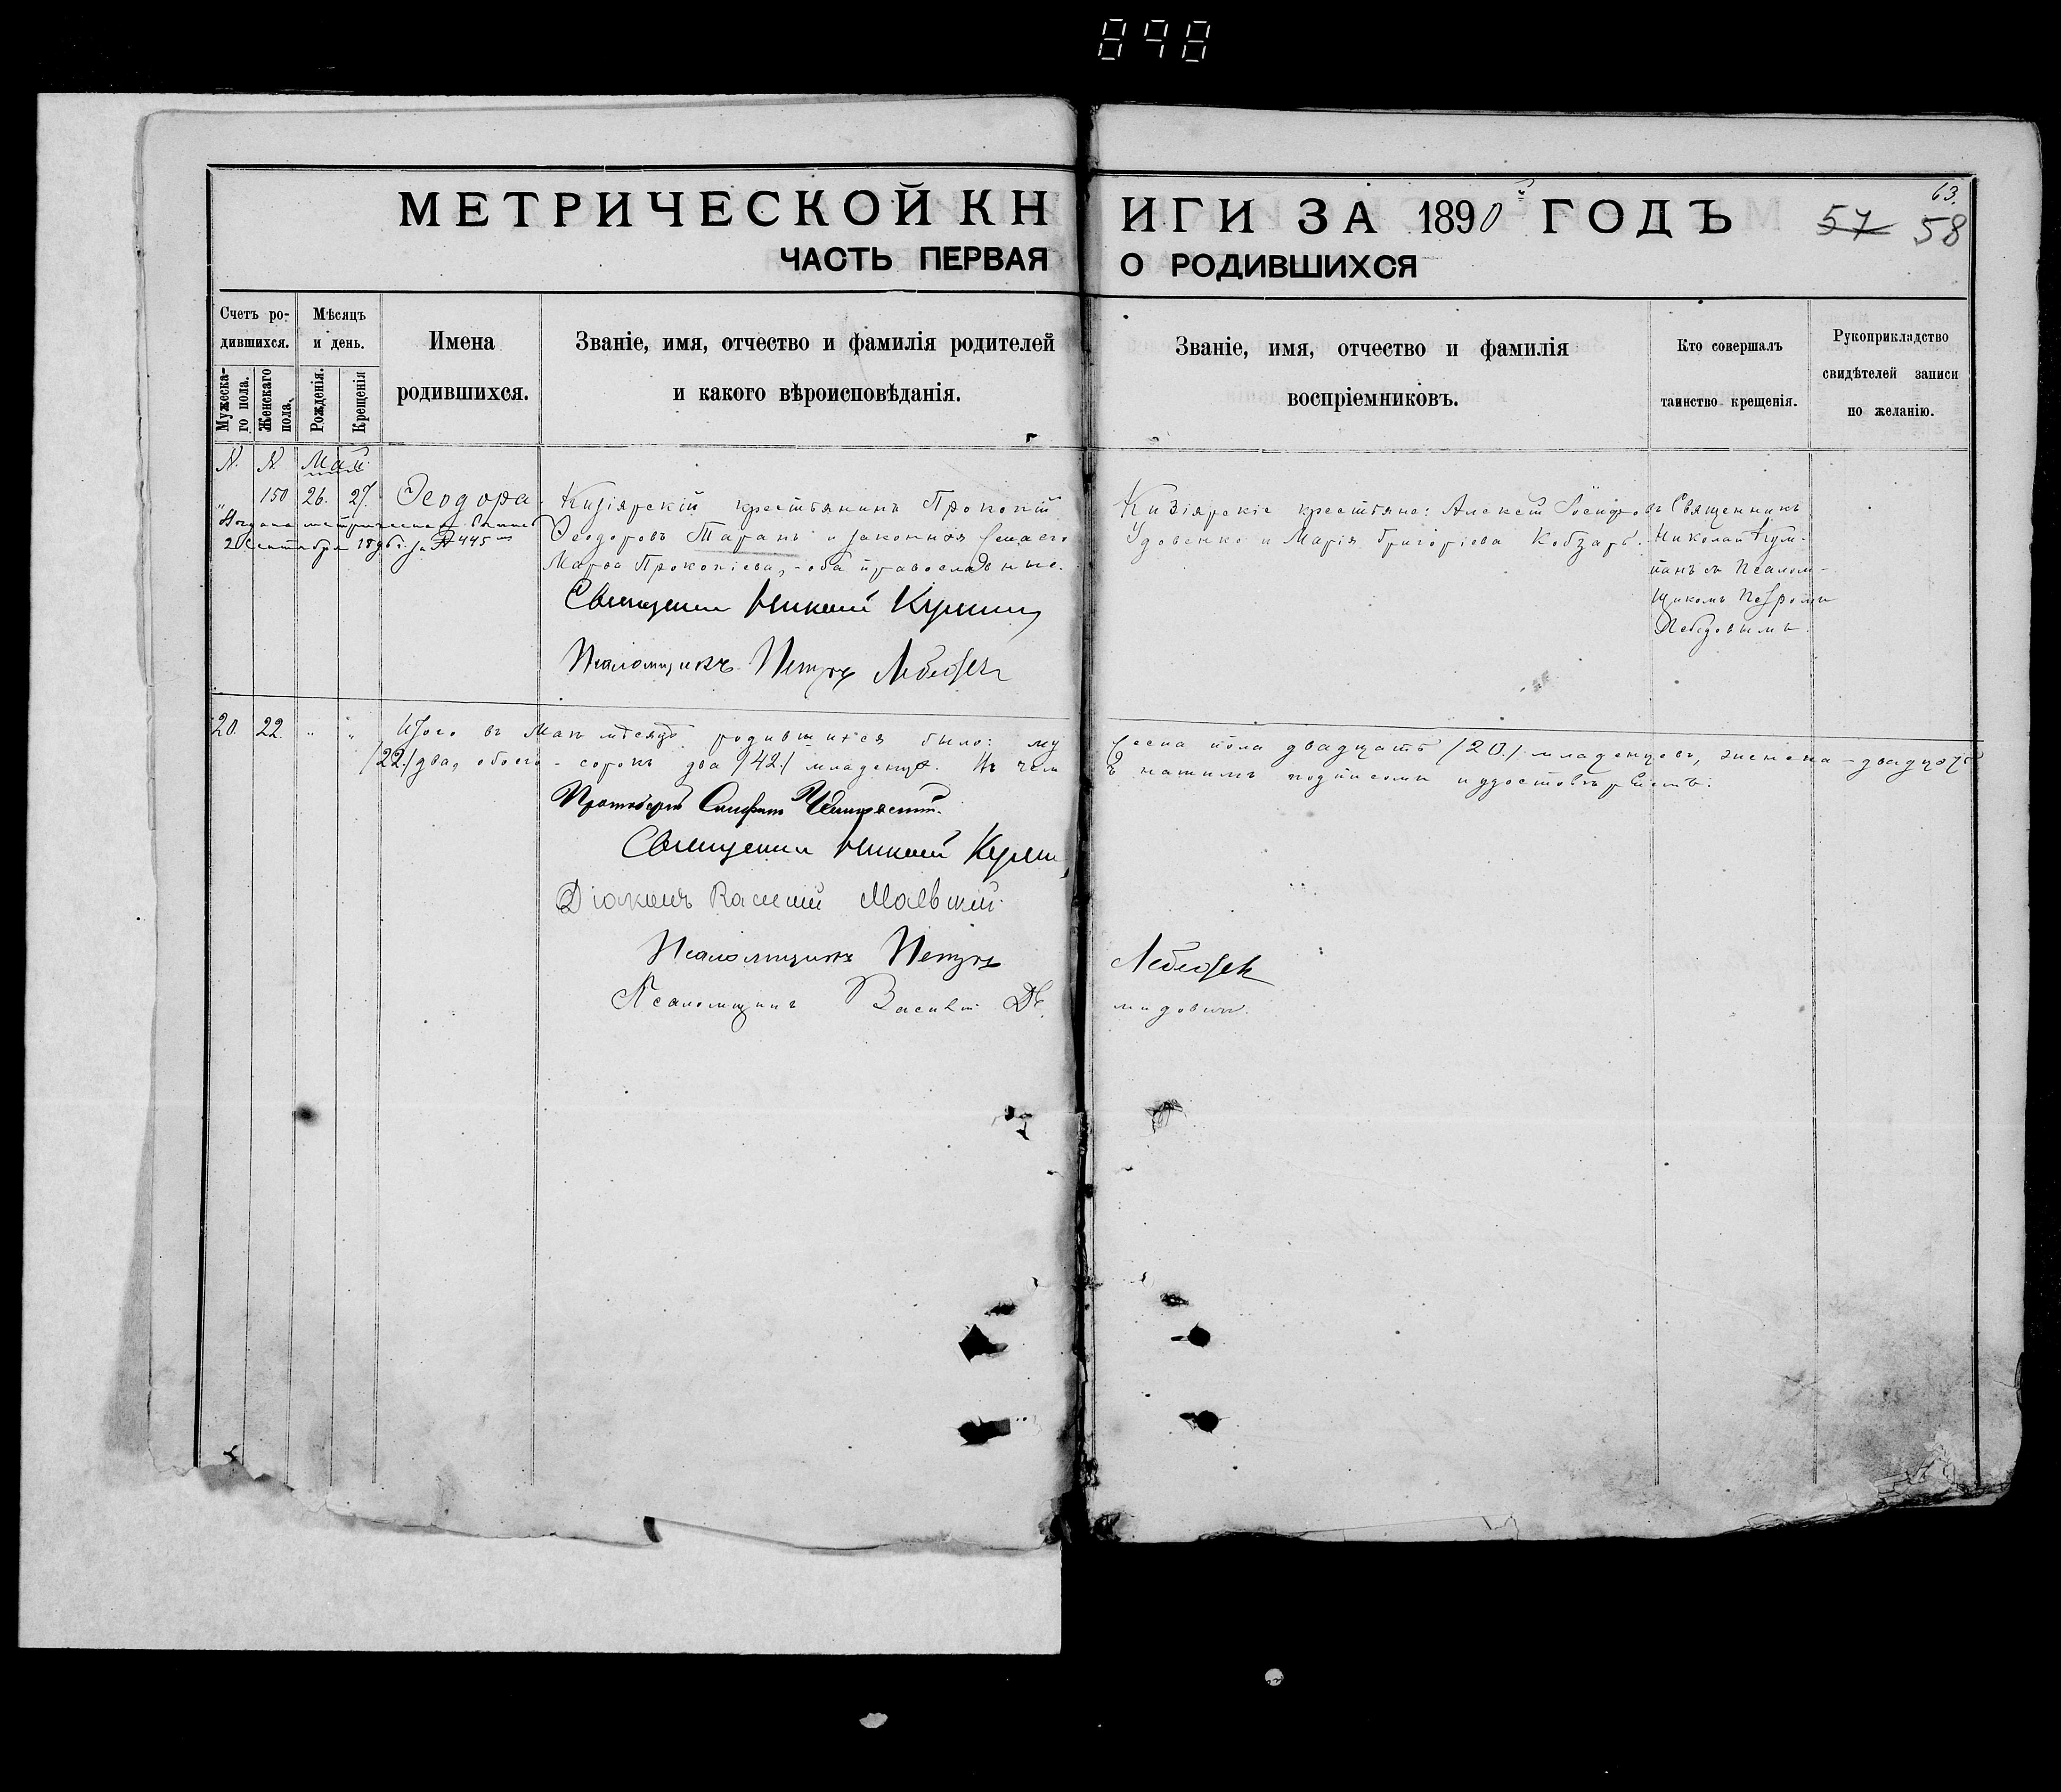 898
МЕТРИЧЕСКОЙ КНИГИ ЗА 1890й ГОДЪ
63.
57 58
ЧАСТЬ ПЕРВАЯ О РОДИВШИХСЯ
Счетъ ро-
дившихся.
Мужеска-
го пола.
Женскаго
пола.
Мѣсяцъ
и день.
Рожденія.
Крещенія
Имена
родившихся.
Званіе, имя, отчество и фамилія родителей
и какого вѣроисповѣданія.
Званіе, имя, отчество и фамилія
воспріемниковъ.
Кто совершалъ
таинство крещенія.
Рукоприкладство
свидѣтелей записи
по желанію.
N. N. Май.
" 150 26. 27. Ѳеодора
Выдана метрическая
2 Сентября за № 445
Кизіярскій крестьянинъ Прокопій
Ѳеодоровъ Таранъ и законная жена его
Марѳа Прокопіева, - оба православные.
Священникъ Николай
Псаломщикъ Петръ Лебедевъ
Кизіярскіе крестьяне: Алексѣй Іосифовъ
Удовенко и Марія Григоріева Кобзарь.
Священникъ
Николай
съ Псалом-
щикомъ Петромъ
Лебедевымъ.
20. 22. " " Итого въ Маѣ мѣсяцѣ родившихся было: мужеска пола двадцать /20./ младенцевъ, женска - двадцать
/22./ два, обоего - сорокъ два /42./ младенца. Въ чемъ нашимъ подписомъ и удостовѣряемъ:
Протоіерей
Священникъ Николай
Діаконъ Василій
Псаломщикъ Петръ Лебедевъ
Псаломщикъ Василій Демидовичъ.